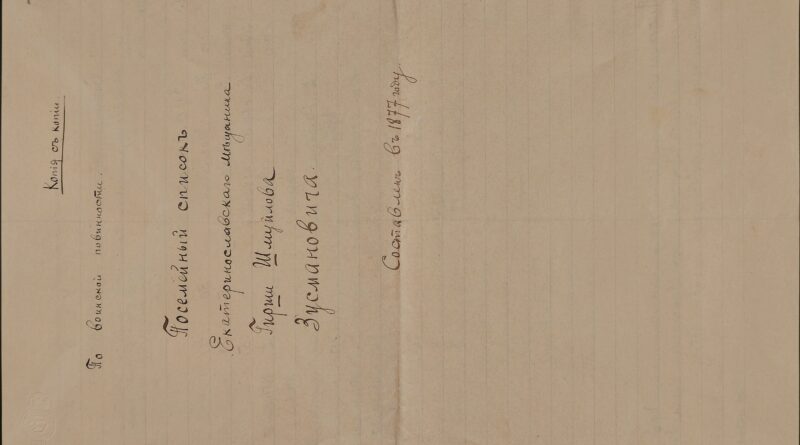 Копія съ копіи.
По воинской повинности.
Посемейный списокъ
Екатеринославскаго мѣщанина
Гирши Шмуйлова
Зусмановича.
Составленъ въ 1877 году.